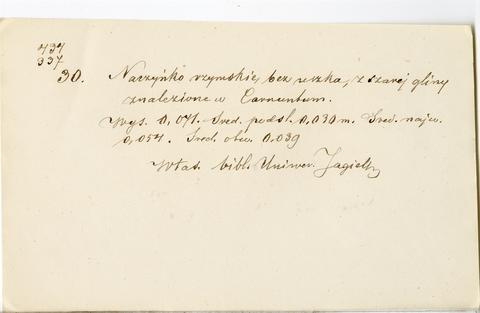 434
337
30. Naczyńko rzymskie, bez uszka, z szarej gliny
znalezione w Carnuntum.
Wys. 0,071. Śred. podst. 0,030 m. Śred. najw.
0,054. Śred. otw. 0,039
Włas. bibl. Uniwer. Jagiell.